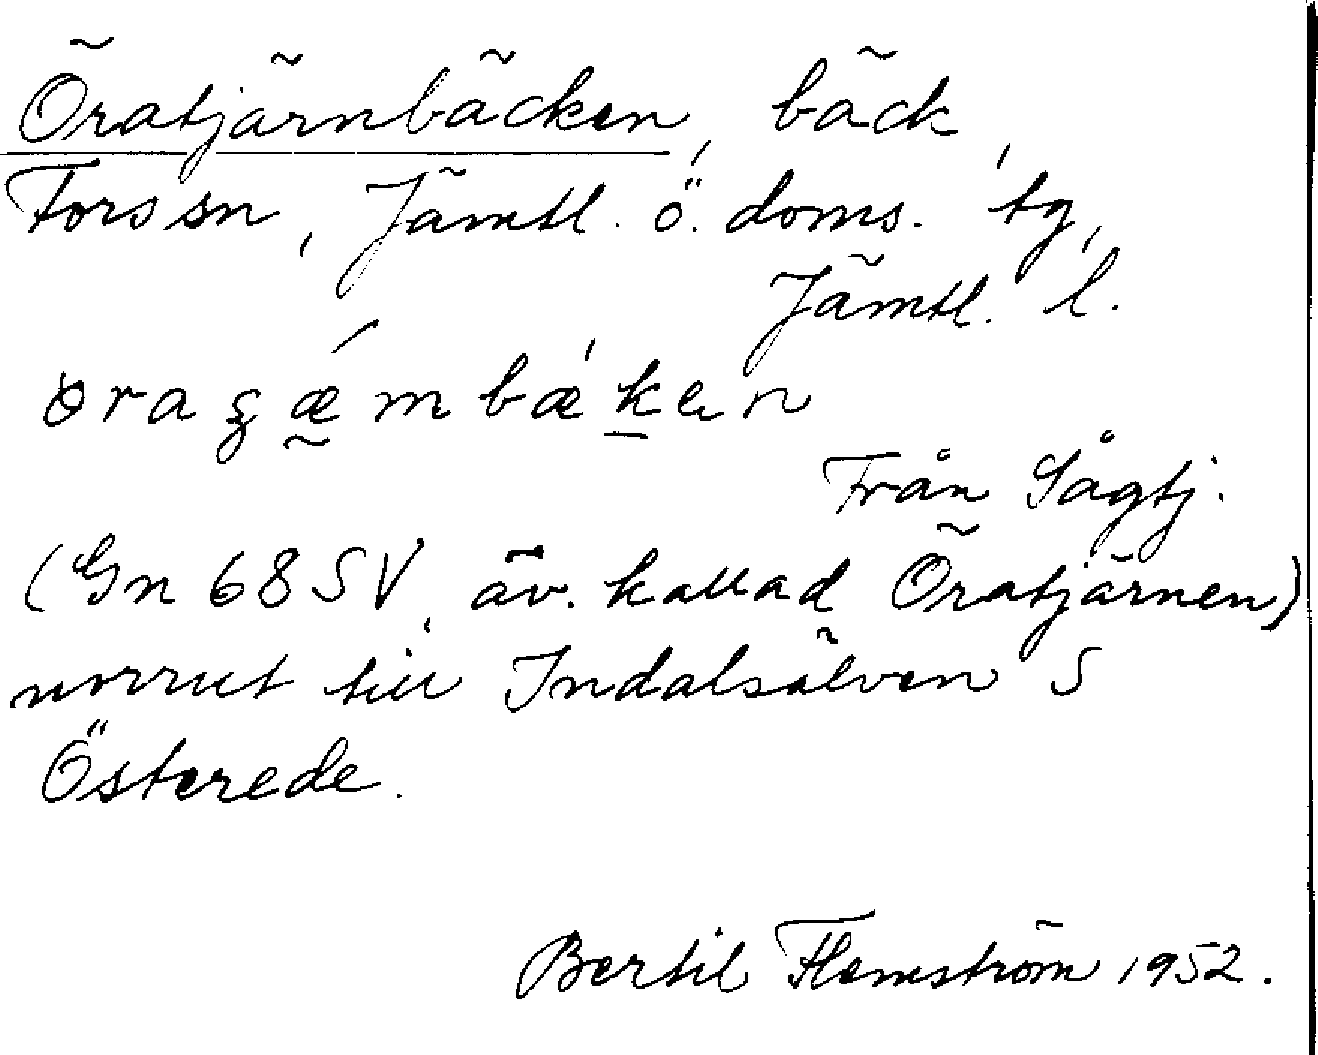 Öratjärnbäcken, bäck,
Fors sn, Jämtl. ö. doms. tg,
Jämtl. l.
Från Sågtj.
(Gn 68 SV, äv. kallad Öratjärnen)
norrut till Indalsälven S
Österede.
Bertil Flemström 1952.